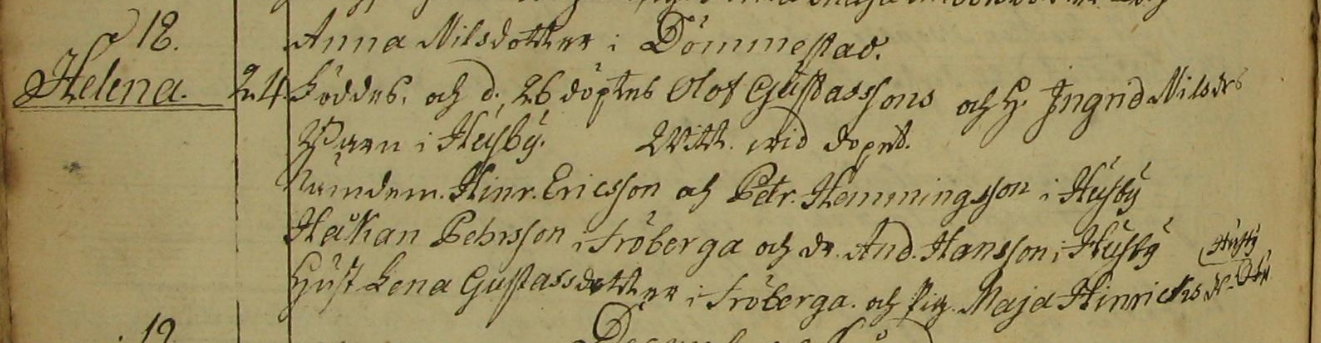 18. Anna Nilsdotter i Dömmestad.
Helena. 24 Föddes. och d. 26 döptes Olof Gustafssons och H. Ingrid Nilsdrs
Barn i Husby. Witt. wid dopet.
Nämdem. Hinr. Ericsson och Petr. Hemmingsson i Husby
Håkan Pehrsson i Fröberga och dr. And. Hansson i Husby
Hust Lena Gustafsdotter i Fröberga. och Pig. Maja Hinrics dr.
Husby
19.